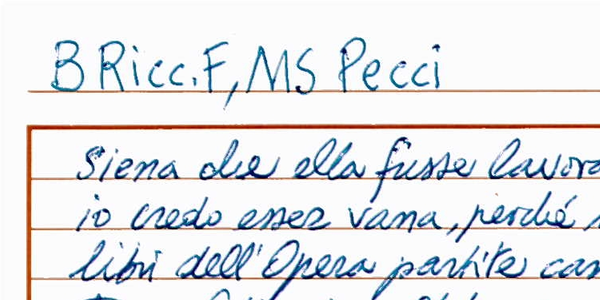 B Ricc. F, MS Pecci
Siena che ella fusse lavora
io credo esser vana, perché
libri dell'Opera partite can